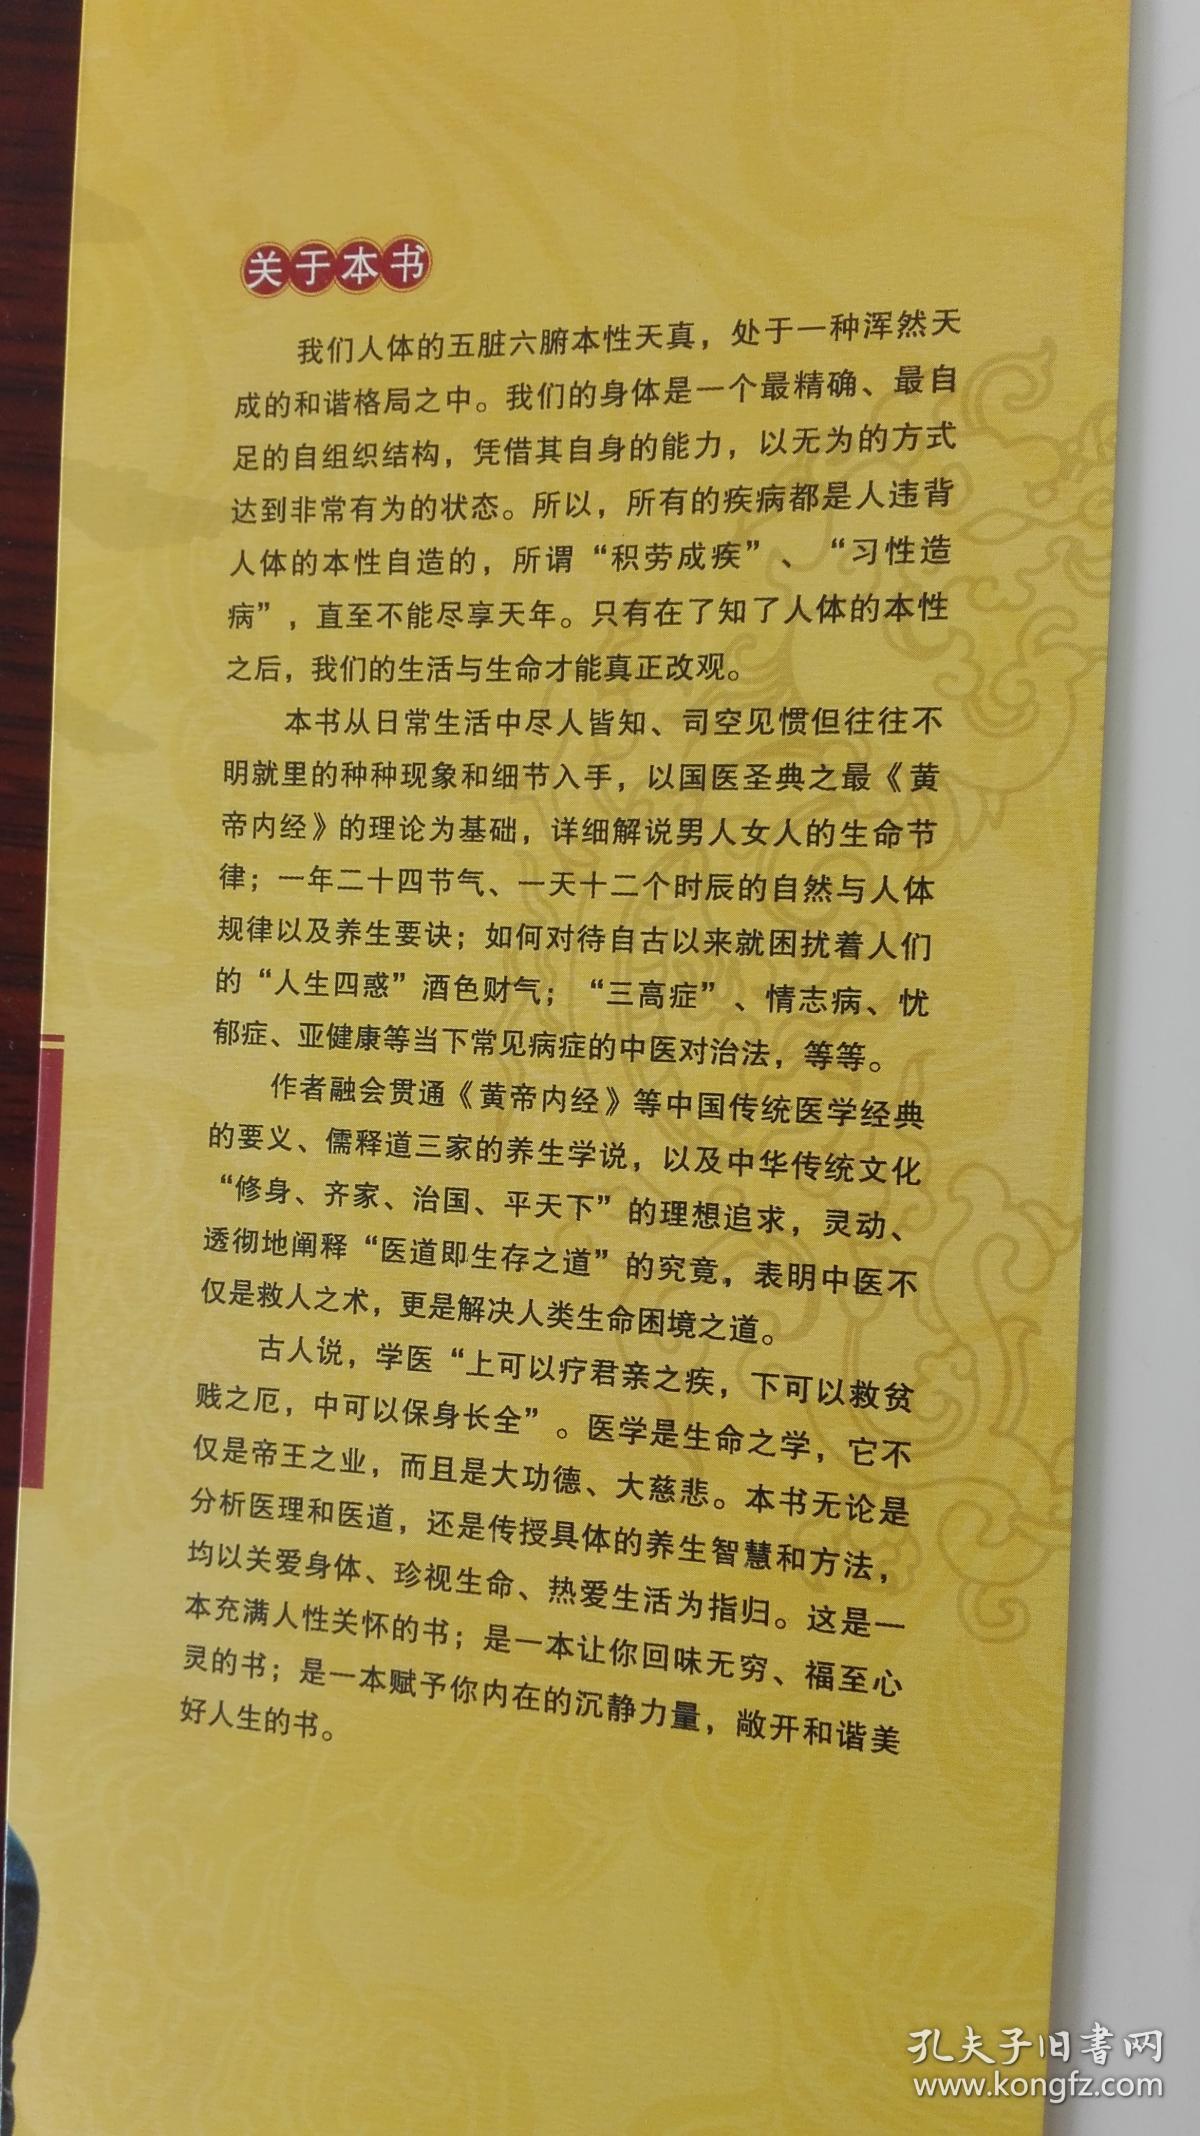 关于本书
我们人体的五脏六腑本性天真，处于一种浑然天
成的和谐格局之中。我们的身体是一个最精确、最自
足的自组织结构，凭借其自身的能力，以无为的方式
达到非常有为的状态。所以，所有的疾病都是人违背
人体的本性自造的，所谓“积劳成疾”、“习性造
病”，直至不能尽享天年。只有在了知了人体的本性
之后，我们的生活与生命才能真正改观。
本书从日常生活中尽人皆知、司空见惯但往往不
明就里的种种现象和细节入手，以国医圣典之最《黄
帝内经》的理论为基础，详细解说男人女人的生命节
律；一年二十四节气、一天十二个时辰的自然与人体
规律以及养生要诀；如何对待自古以来就困扰着人们
的“人生四惑”酒色财气；“三高症”、情志病、忧
郁症、亚健康等当下常见病症的中医对治法，等等。
作者融会贯通《黄帝内经》等中国传统医学经典
的要义、儒释道三家的养生学说，以及中华传统文化
“修身、齐家、治国、平天下”的理想追求，灵动、
透彻地阐释“医道即生存之道”的究竟，表明中医不
仅是救人之术，更是解决人类生命困境之道。
古人说，学医“上可以疗君亲之疾，下可以救贫
贱之厄，中可以保身长全”。医学是生命之学，它不
仅是帝王之业，而且是大功德、大慈悲。本书无论是
分析医理和医道，还是传授具体的养生智慧和方法，
均以关爱身体、珍视生命、热爱生活为指归。这是一
本充满人性关怀的书；是一本让你回味无穷、福至心
灵的书；是一本赋予你内在的沉静力量，敞开和谐美
好人生的书。
孔夫子旧书网
www.kongfz.com